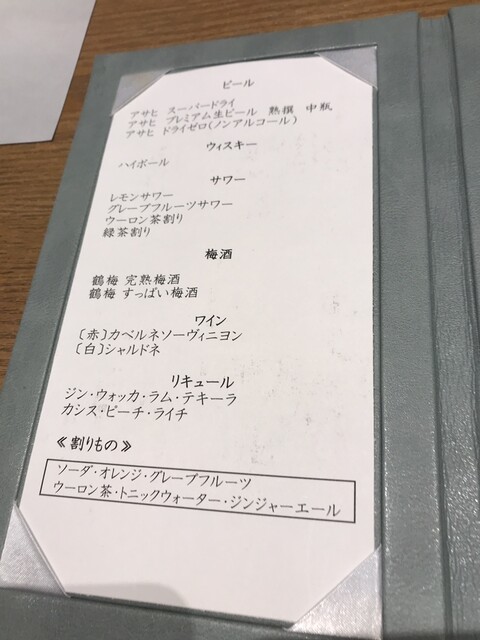 ビール
アサヒ スーパードライ
アサヒ プレミアム生ビール 熟撰 中瓶
アサヒ ドライゼロ(ノンアルコール)
ウィスキー
ハイボール
サワー
レモンサワー
グレープフルーツサワー
ウーロン茶割り
緑茶割り
梅酒
鶴梅 完熟梅酒
鶴梅 すっぱい梅酒
ワイン
〔赤〕カベルネソーヴィニヨン
〔白〕シャルドネ
リキュール
ジン・ウォッカ・ラム・テキーラ
カシス・ピーチ・ライチ
≪割りもの≫
ソーダ・オレンジ・グレープフルーツ
ウーロン茶・トニックウォーター・ジンジャーエール